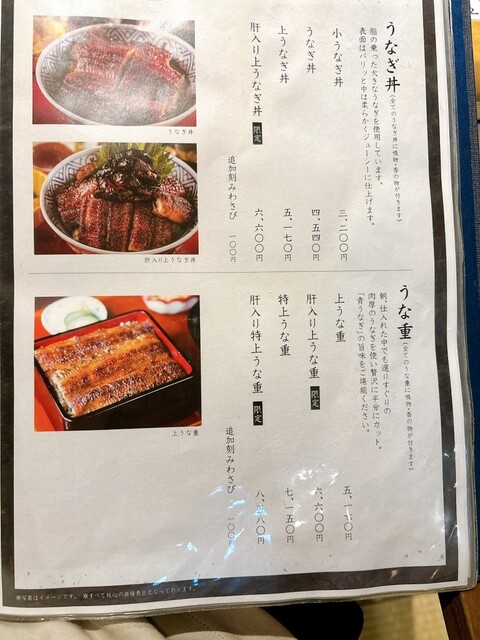 うなぎ丼(全てのうなぎ丼に吸物・香の物が付きます)
脂の乗った大きなうなぎを使用しています。
表面はパリッと中は柔らかくジューシーに仕上げます。
小うなぎ丼 三、二〇〇円
うなぎ丼 四、五四〇円
上うなぎ丼 五、一七〇円
肝入り上うなぎ丼 限定 六、六〇〇円
追加刻みわさび 一〇〇円
うなぎ丼
肝入り上うなぎ丼
うな重(全てのうな重に吸物・香の物が付きます)
朝、仕入れた中でも選りすぐりの
肉厚のうなぎを使い贅沢に半分にカット。
「青うなぎ」の旨味をご堪能ください。
上うな重 五、一七〇円
肝入り上うな重 限定 六、六〇〇円
特上うな重 七、一五〇円
肝入り特上うな重 限定
追加刻みわさび 一〇〇円
上うな重
※写真はイメージです。 ※すべて税込の価格表示となっております。